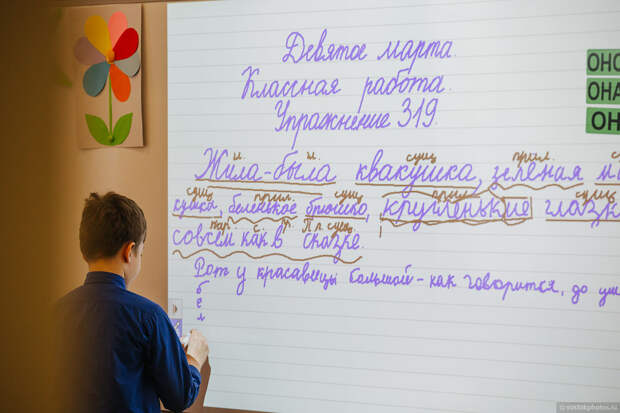 Девятое марта.
Классная работа.
Упражнение 319.
ОНО
ОНА
ОН
сущ прил.
Жила-была квакушка, зелёная
сущ прил. сущ прил. сущ
беленькое брюшко, кругленькие глазк
нар. с. п. П п сущ.
совсем как в сказке.
Рот у красавицы большой - как говорится, до уш
б
е
л
© vostokphotos.ru